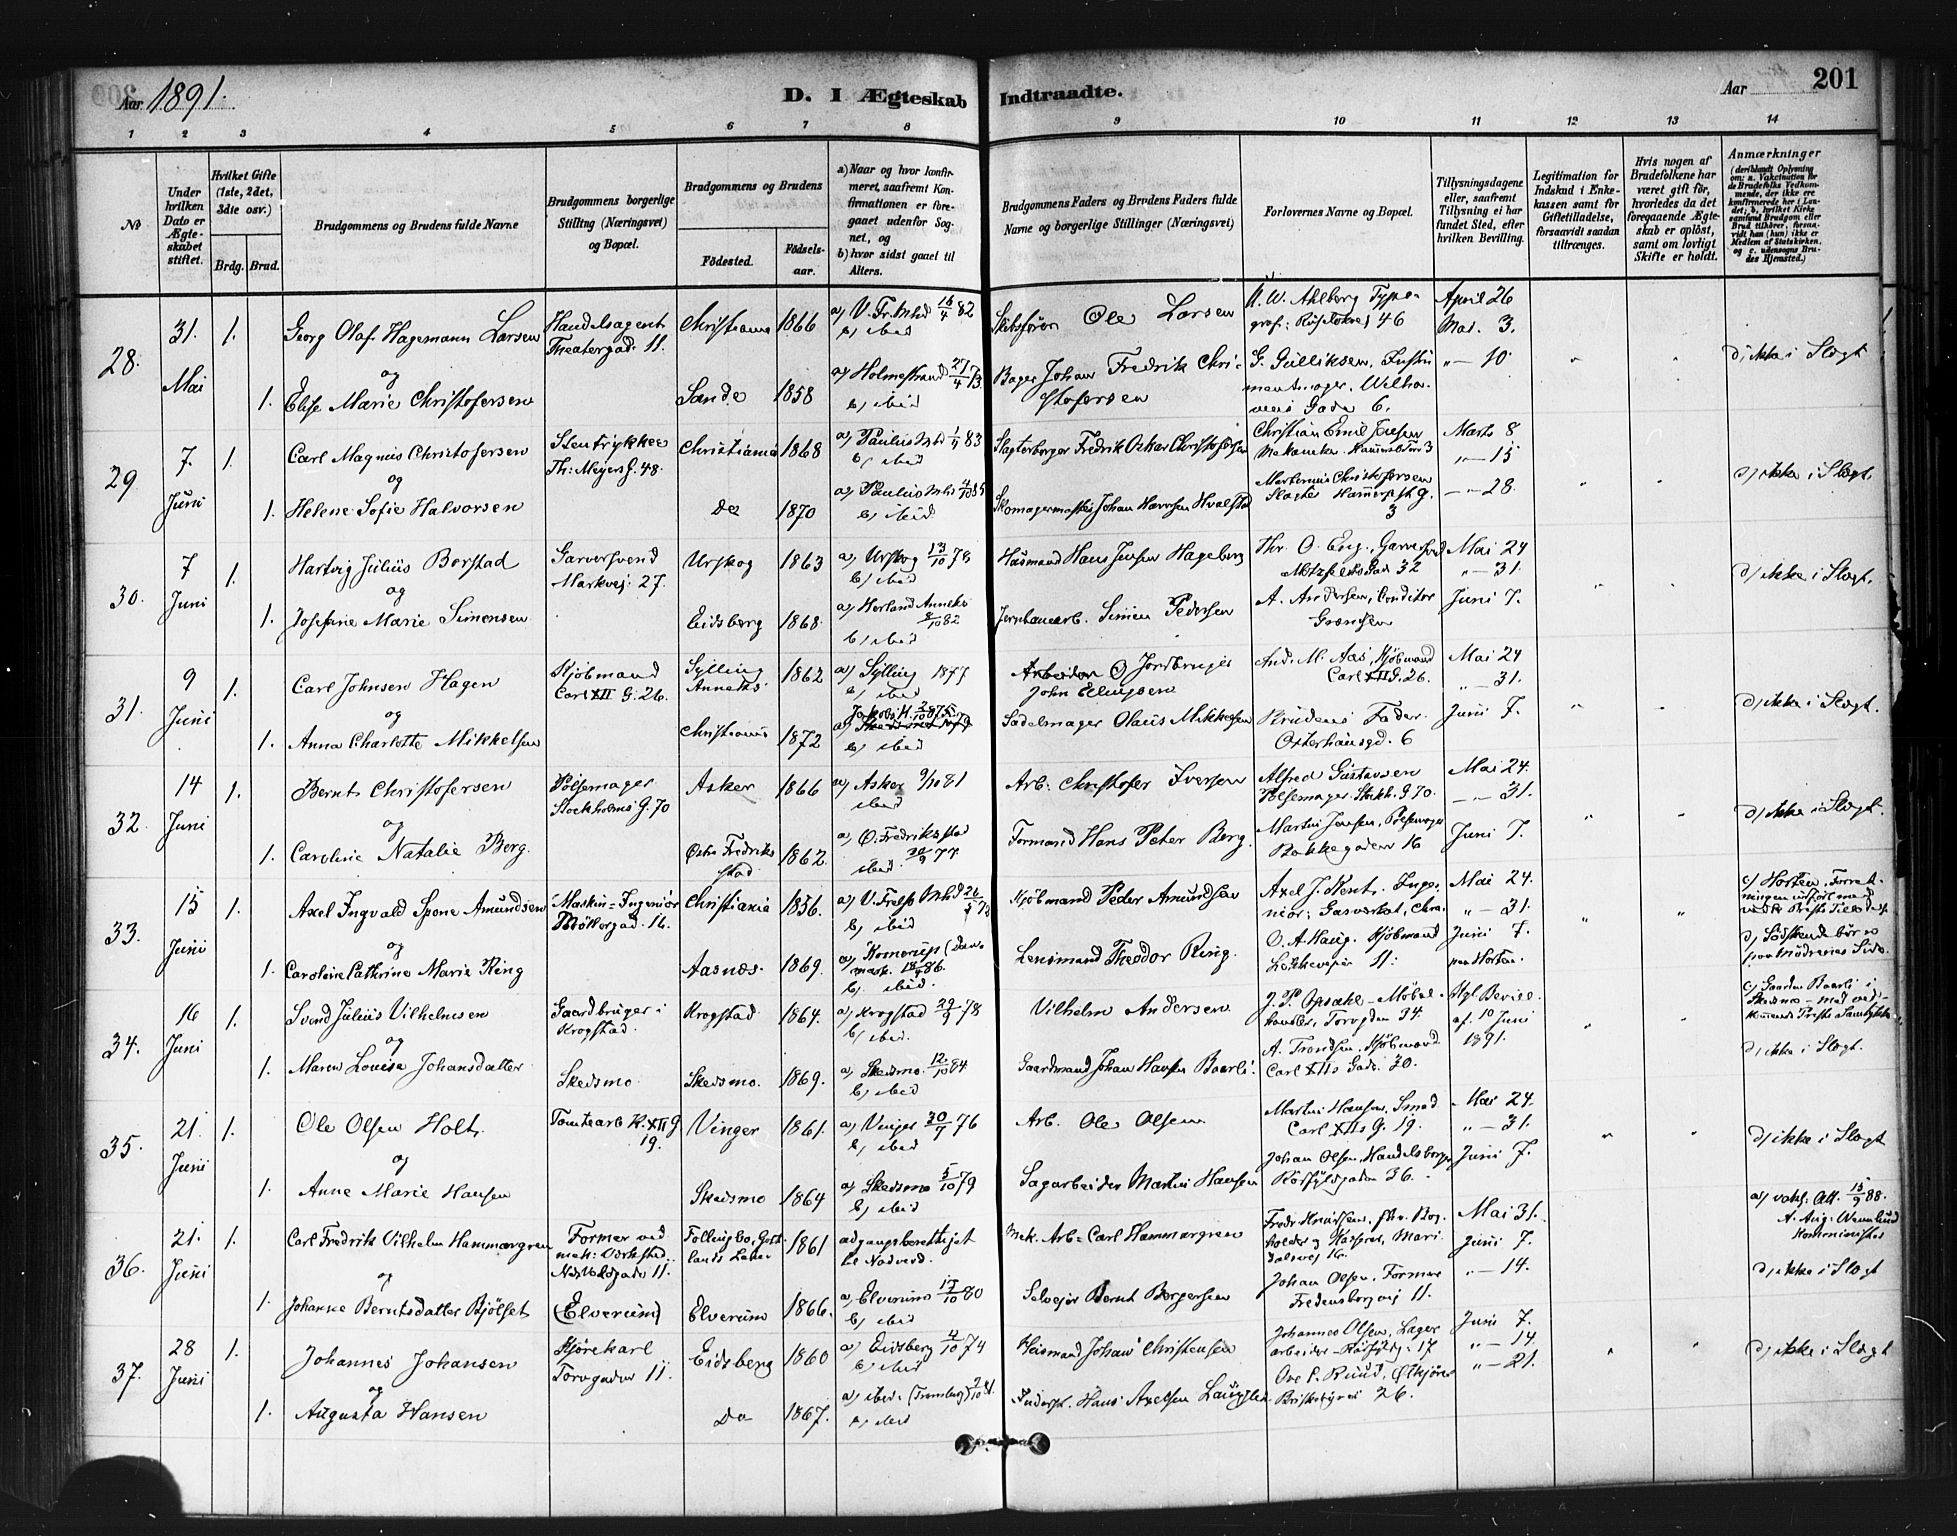 Aar 1891.
D. I Ægteskab Indtraadte.
Aar
201
1 2 3 4 5 6 7 8 9 10 11 12 13 14
No
Under hvilken Dato er Ægteskabet stiftet.
Hvilket Gifte (1ste, 2det, 3die osv.)
Brdg. Brud.
Brudgommens og Brudens fulde Navne
Brudgommens borgerlige Stilling (Næringsvei) og Bopæl.
Brudgommens og Brudens
Fødested.
Fødselsaar.
a) Naar og hvor konfirmeret, saafremt Konfirmationen er foregaaet udenfor Sognet, og
b) hvor sidst gaaet til Alters.
Brudgommens Faders og Brudens Faders fulde Navne og borgerlige Stillinger (Næringsvei)
Forlovernes Navne og Bopæl.
Tillysningsdagene eller, saafremt Tillysning ei har fundet Sted, efter hvilken Bevilling.
Legitimation for Indskud i Enkekassen samt for Giftetilladelse, forsaavidt saadan tiltrænges.
Hvis nogen af Brudefolkene har været gift før, hvorledes da det foregaaende Ægteskab er opløst, samt om lovligt Skifte er holdt.
Anmærkninger
(deriblandt Oplysning om: a. Vakcination for de Brudefolks Vedkommende, der ikke ere konfirmerede her i Landet; b. hvilket Kirkesamfund Brudgom eller Brud tilhører, forsaavidt han (hun) ikke er Medlem af Statskirken, og c. udensogns Brudes Hjemsted.)
28. 31. Mai 1. Georg Olaf Hagemann Larsen Handelsagent Theatergad. 11. Christiania 1866 a) V. Fr. Mhd 16/4 82 b) ibid
Skibsfører Ole Larsen
W. Ahlberg Typograf: Ruseløkvej 46
April 26 Mai. 3.
og
1. Elise Marie Christofersen Sande 1858 a) Holmestrand 27/4 73. b) ibid
Bager Johan Fredrik Christofersen
G. Gulliksen, Instrumentmager, Welhavens Gade 6.
" — 10.
d) ikke i Slægt
29 7. Juni 1. Carl Magnus Christofersen Stentrykker Th: Meyers G. 48. Christiania 1868 a) Paulus Mhd 1/4 83 b) ibid
Slagterborger Fredrik Oskar Christofersen
Christian Emil
Marts 8 " — 15
og
1. Helene Sofie Halvorsen Do 1870 a) Paulus Mhd 4/10 85 b) ibid
Skomagermester Johan Hvalstad
Christofersen Slagter 3
" — 28.
d) ikke i Slægt
30. 7 Juni 1. Hartvig Julius Borstad Garversvend Markvej. 27. Urskog 1863 a) Urskog 13/10 78 b) ibid
Husmand Hans Jensen Hageberg
Thr. O. Eng, Garversvend 32
Mai 24 " — 31.
og
1. Josefine Marie Simonsen Eidsberg 1868. a) Hovland Anneks 8/10 82 b) ibid
Simen Pedersen
A. Andersen, Conditor Grænsen
Juni 7.
d) ikke i Slægt.
31. 9 Juni 1. Carl Johnsen Hagen Kjøbmand Carl XII G. 26. Sylling Anneks 1862 a) Sylling 1877 b) ibid
Arbeider
And. M. Aas, Kjøbmand Carl XII G. 26.
Mai 24 " — 31.
og
1. Anna Charlotte Mikkelsen Christiania 1872 b) ibid
Sadelmager Olaus Mikkelsen
Brudens Fader. Osterhausgd. 6
Juni 7.
d) ikke i Slægt.
32. 14 Juni 1. Bernt Christofersen Pølsemager Stockholms G. 70 Asker 1866 a) Asker 9/10 81 ibid
Arb. Christofer Iversen
Alfred Gustavsen Pølsemager Stockh. G. 70.
Mai 24. " — 31.
og
1. Caroline Natalie Berg. Østre Fredrikstad 1862. a) Ø. Fredriksstad ibid. 30/9 77
Formand Hans Peter Berg.
Martin Jensen, Pølsemager Bakkegaden 16
Juni 7.
d) ikke i Slægt.
33. 15 Juni 1. Axel Ingvald Spone Amundsen Maskin-Ingeniør 16. Christiania 1856. a) V. Frelss Mhd b) ibid
Kjøbmand Peder Amundsen
Axel J. Ingeniør, Gasverket, Chra.
Mai 24. " — 31.
c) Horten.
og
1. Caroline Cathrine Marie Ring Aasnes. 1869. a) (Danmark. 86. b) ibid.
Lensmand Theodor Ring.
O. A. Haug. Kjøbmand Løkkevejen 11.
Juni 7. paa Horten.
d) Sødskendebørn paa Mødrenes Side.
34. 16 Juni 1. Svend Julius Vilhelmsen Gaardbruger i Krogstad. Krogstad 1864. a) Krogstad 29/9 78 b) ibid.
Vilhelm Andersen
J. P. Opsahl - Møbelhandler, Torvgaden 34.
Kgl. Bevill. af 10 Juni 1891.
c) Gaarden Baarli i Skedsmo
og
1. Maren Louise Johansdatter Skedsmo Skedsmo. 1869. a) Skedsmo 12/10 84 b) ibid
Gaardmand Johan Hansen Baarli.
A. Trondsen, Kjøbmand Carl XIIs Gade 30.
d) ikke i Slægt.
35. 21. Juni 1. Ole Olsen Holt. Tomtearb. K. XII G 19. Vinger 1861. a) Vinger 30/7 76 b) ibid
Arb. Ole Olsen
Martin Hansen, Smed Carl XIIs G. 19.
Mai 24. " — 31.
og
1. Anne Marie Hansen Skedsmo 1864 a) Skedsmo 5/10 79 b) ibid
Sagarbeider Martin Hansen
Johan Olsen, Handelsborger 36.
Juni 7.
d) ikke i Slægt
36. 21. Juni 1. Carl Fredrik Vilhelm Hammargren Former ved mek: Værksted. 11. Follingbo, Gotlands Lehn 1861 adgangsberettiget til Nadverd.
Mek. Arb. Carl Hammargren
Mai 31. Juni 7.
a) vakc. Att. 15/9 88.
og
1. Johanne Berntsdatter Bjølset (Elverum) Elverum 1866. a) Elverum 17/10 80 b) ibid
Selvejer Bernt Borgersen
Johan Olsen, Former Fredensborgvej 11.
" — 14.
d) ikke i Slægt
37. 28 Juni 1. Johannes Johansen Kjørekarl Torvgaden 11. Eidsberg 1860 a) Eidsberg 4/10 74 b) ibid
Husmand Johan Christensen
Johannes Olsen, Lagerarbeider 17
Juni 7. " — 14.
og
1. Augusta Hansen Do 1867. a) ibid. b) ibid
Hans Axelsen
Ove P. Ruud, Ølkjører 26.
" — 21.
d) ikke i Slægt